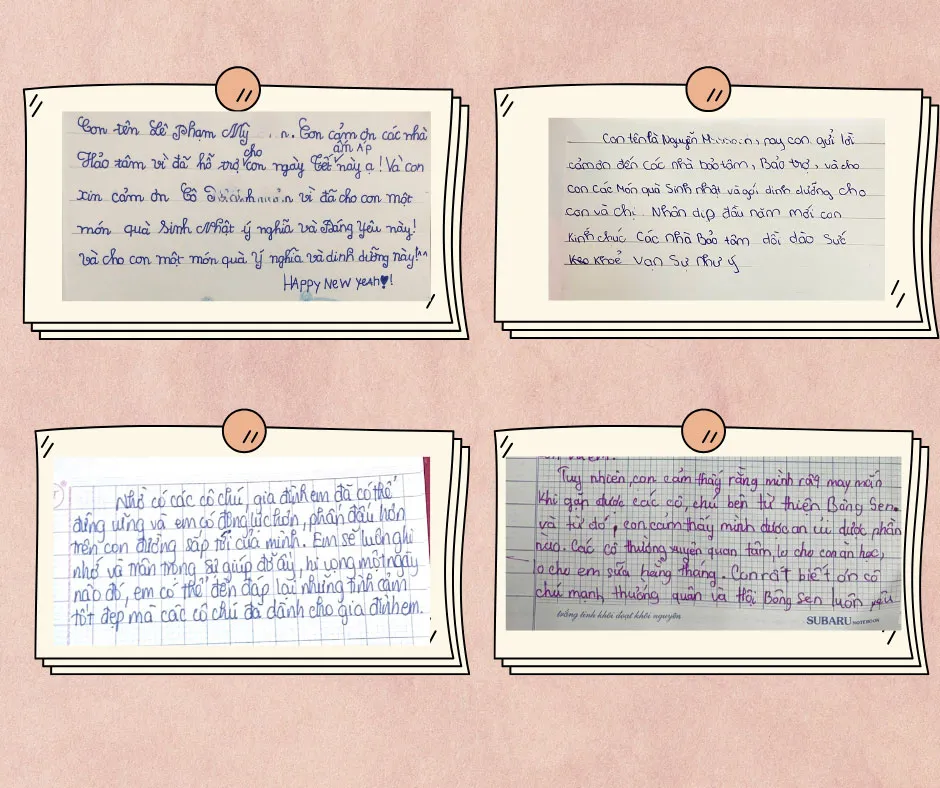 Con tên Lê Phạm Mỹ n. Con cảm ơn các nhà
ấm áp
cho
Hảo tâm vì đã hỗ trợ con ngày Tết này ạ! Và con
xin cảm ơn Cô vì đã cho con một
món quà Sinh Nhật ý nghĩa và Đáng yêu này!
và cho con một món quà Ý nghĩa và dinh dưỡng này!^^
HAPPY NEW YEAH♥!
Con tên là Nguyễn, nay con gửi lời
cảm ơn đến Các nhà bảo tâm, Bảo trợ, và cho
con Các Món quà Sinh nhật và gói dinh dưỡng cho
con và chị. Nhân dịp đầu năm mới con
Kính chúc Các nhà Bảo tâm dồi dào Sức
Khoẻ Vạn Sự như ý
Nhờ có các cô chú, gia đình em đã có thể
đứng vững và em có động lực hơn, phấn đấu hơn
trên con đường sắp tới của mình. Em sẽ luôn ghi
nhớ và trân trọng sự giúp đỡ ấy, hi vọng một ngày
nào đó, em có thể đền đáp lại những tình cảm
tốt đẹp mà các cô chú đã dành cho gia đình em.
Tuy nhiên, con cảm thấy rằng mình rất may mắn
khi gặp được các cô, chú bên từ thiện Bông Sen.
và từ đó, con cảm thấy mình được an ủi được phần
nào. Các cô thường xuyên quan tâm, lo cho con ăn học,
lo cho em sữa hằng tháng. Con rất biết ơn cô
chú mạnh thường quân và Hội Bông Sen luôn yêu
trắng tinh khôi đượt khôi nguyên
SUBARU NOTEBOOK